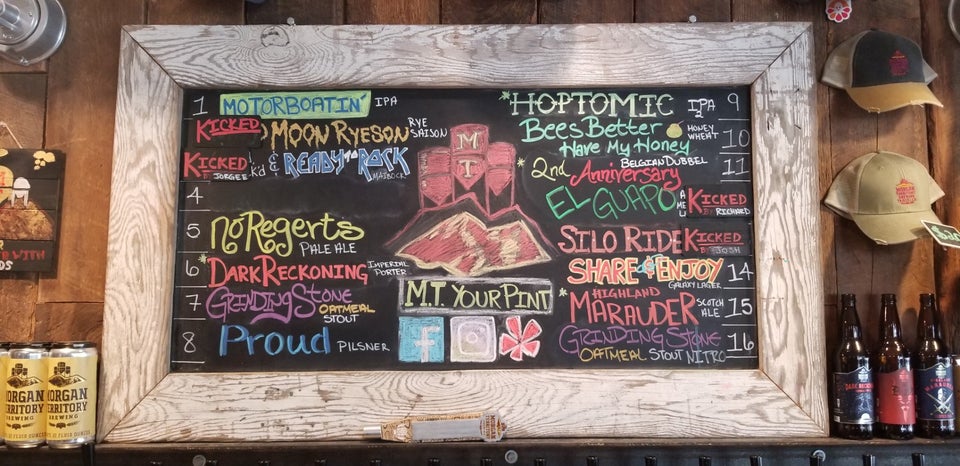 1 MOTORBOATIN' IPA
KICKED MOON RYESON RYE SAISON
KICKED BY JORGEE k'd & READY to ROCK MAIBOCK
4
5 NO REGERTS PALE ALE
6 *DARK RECKONING IMPERIAL PORTER
7 GRINDING STONE OATMEAL STOUT
8 Proud PILSNER
MT
M.T. YOUR PINT
f
*HOPTOMIC IPA 9
Bees Better Have My Honey HONEY WHEAT 10
*2nd Anniversary BELGIAN DUBBEL 11
EL GUAPO KICKED BY RICHARD
SILO RIDE KICKED BY JOSH
SHARE & ENJOY GALAXY LAGER 14
*HIGHLAND MARAUDER SCOTCH ALE 15
GRINDING STONE OATMEAL STOUT NITRO 16
MORGAN TERRITORY BREWING
MORGAN TERRITORY
DARK RECKONING